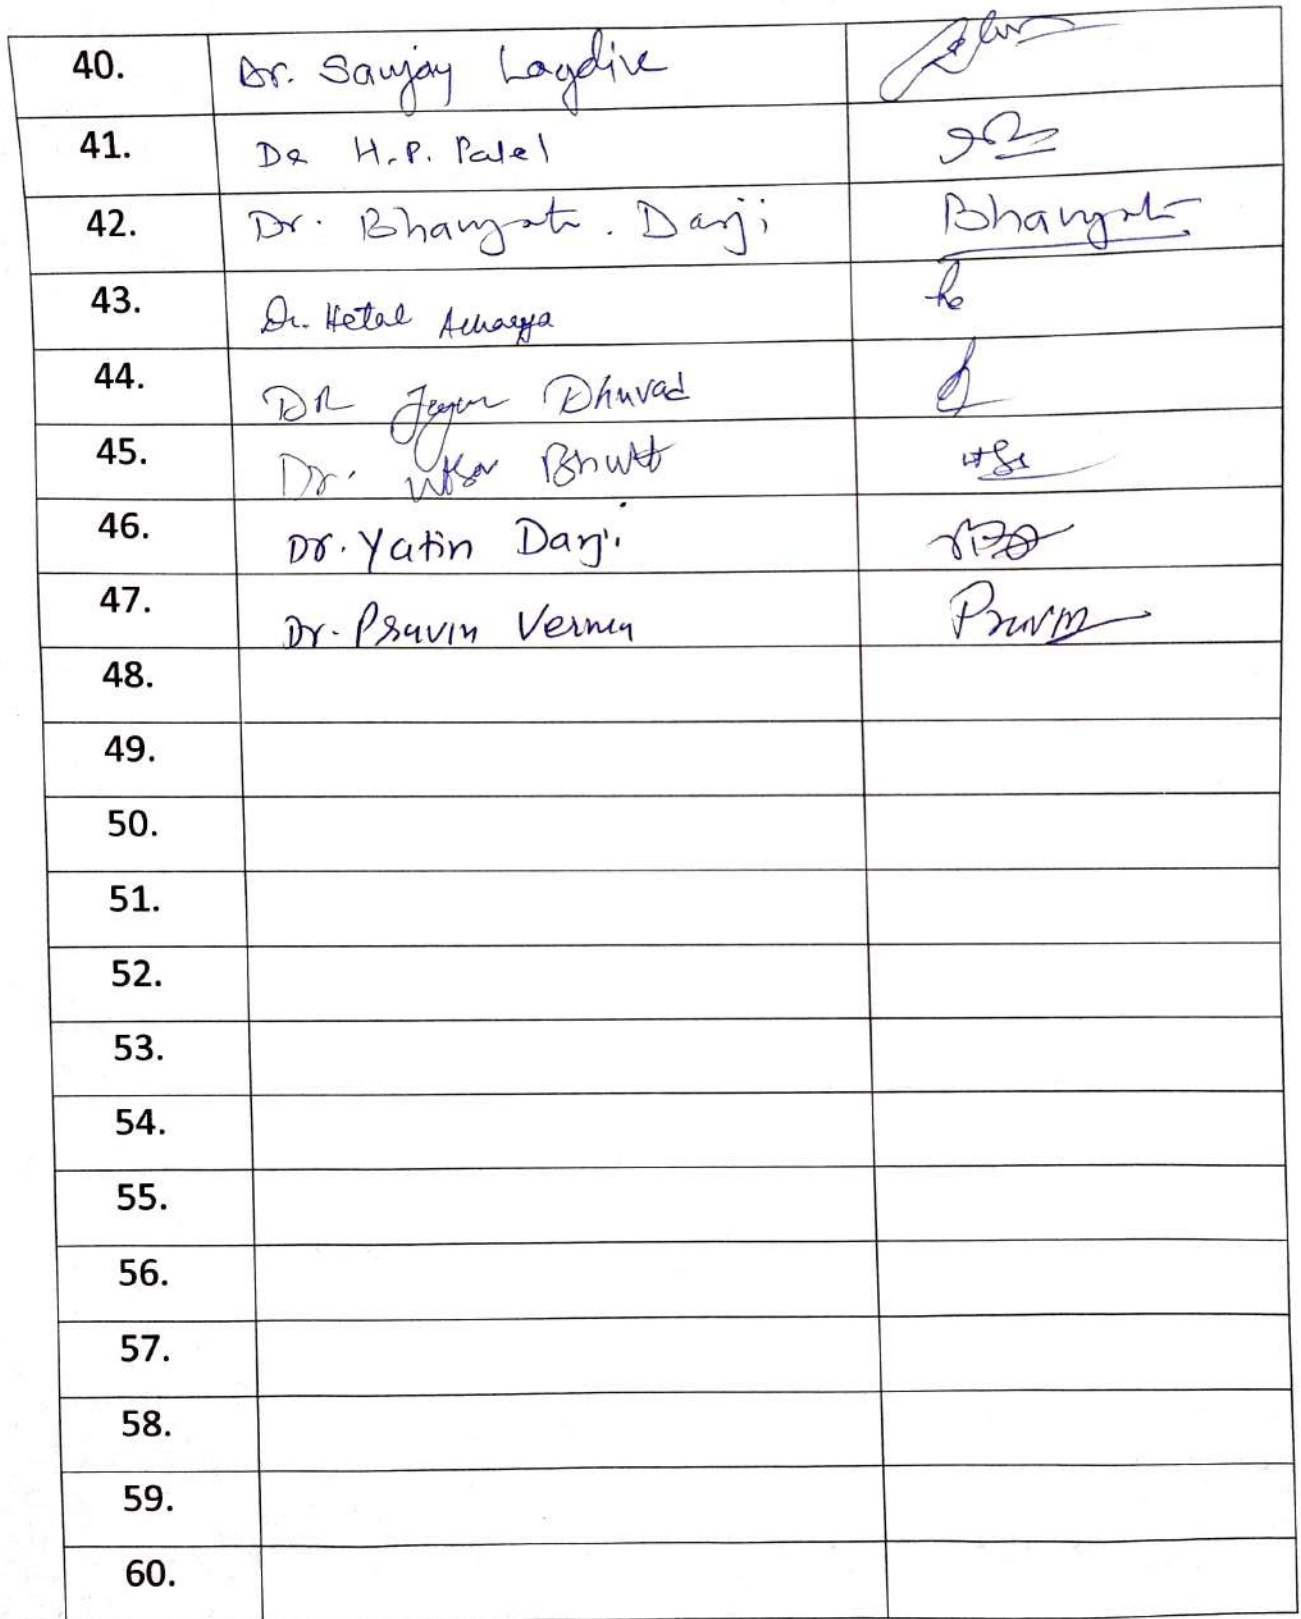 40. Dr. Sanjay Lagdive
41. Dr H.P. Patel
42. Dr. Bhargati. Darji Bhargati
43. Dr. Hetal Acharya
44. DR Dhuvad
45. Dr. Bhatt
46. Dr. Yatin Darji
47. Dr. Pravin Verma Pravin
48.
49.
50.
51.
52.
53.
54.
55.
56.
57.
58.
59.
60.